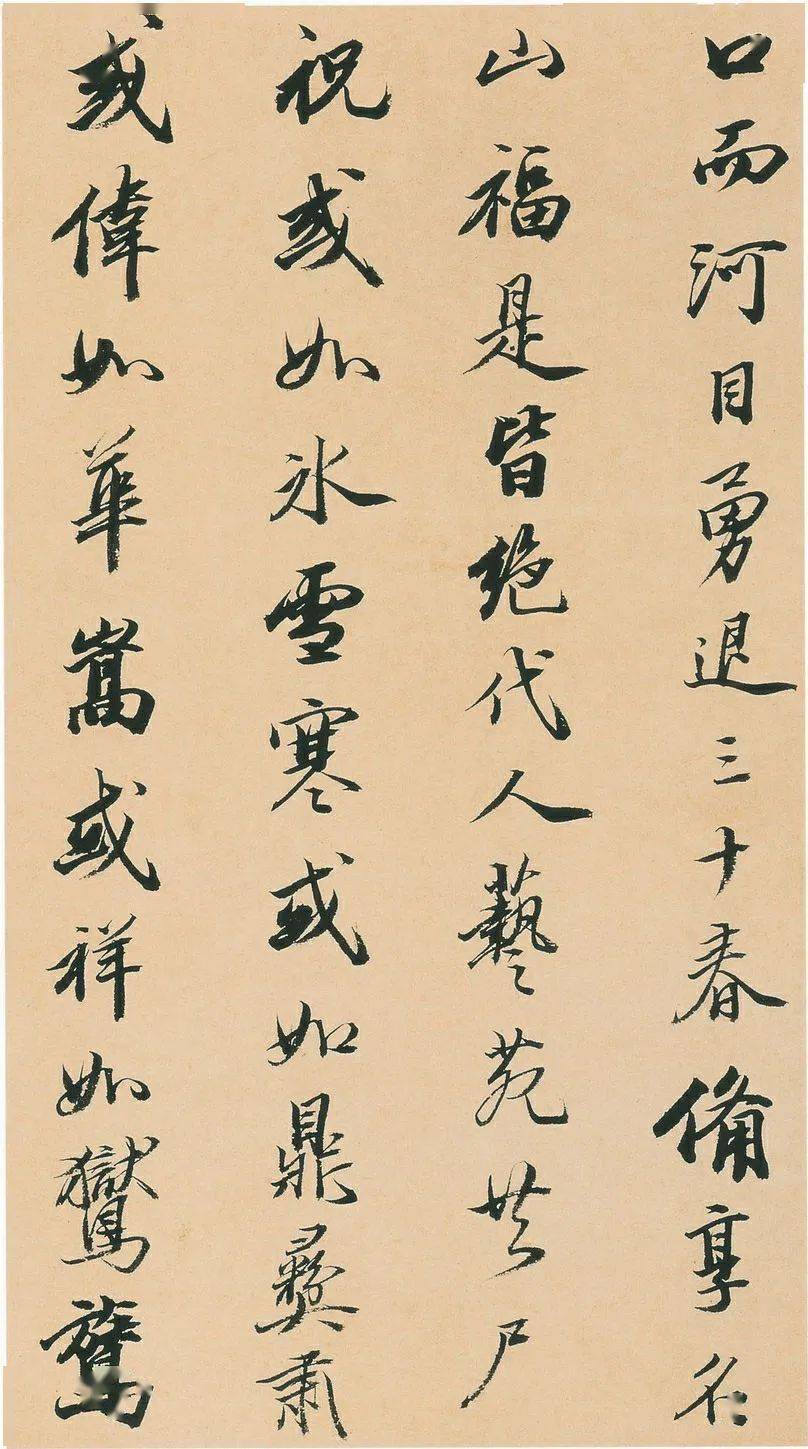 口而河目勇退三十春備享名
山福是皆絕代人藝苑共尸
祝或如冰雪寒或如鼎彝肅
或偉如華嵩或祥如鸑鷟